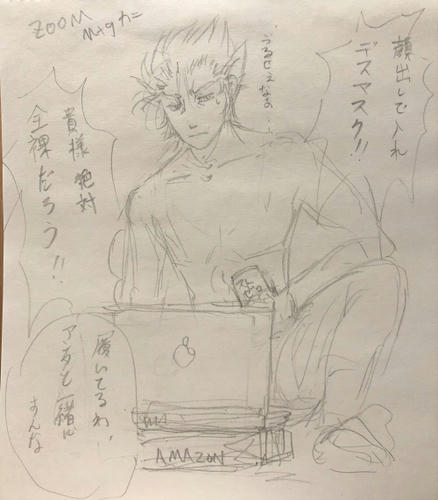 ZOOM
顔出しで入れ
デスマスク!!
うるせぇなぁ…
貴様 絶対
全裸だろう!!
スト
ゼロ
履いてるわ、
アンタと一緒に
すんな
AMAZON